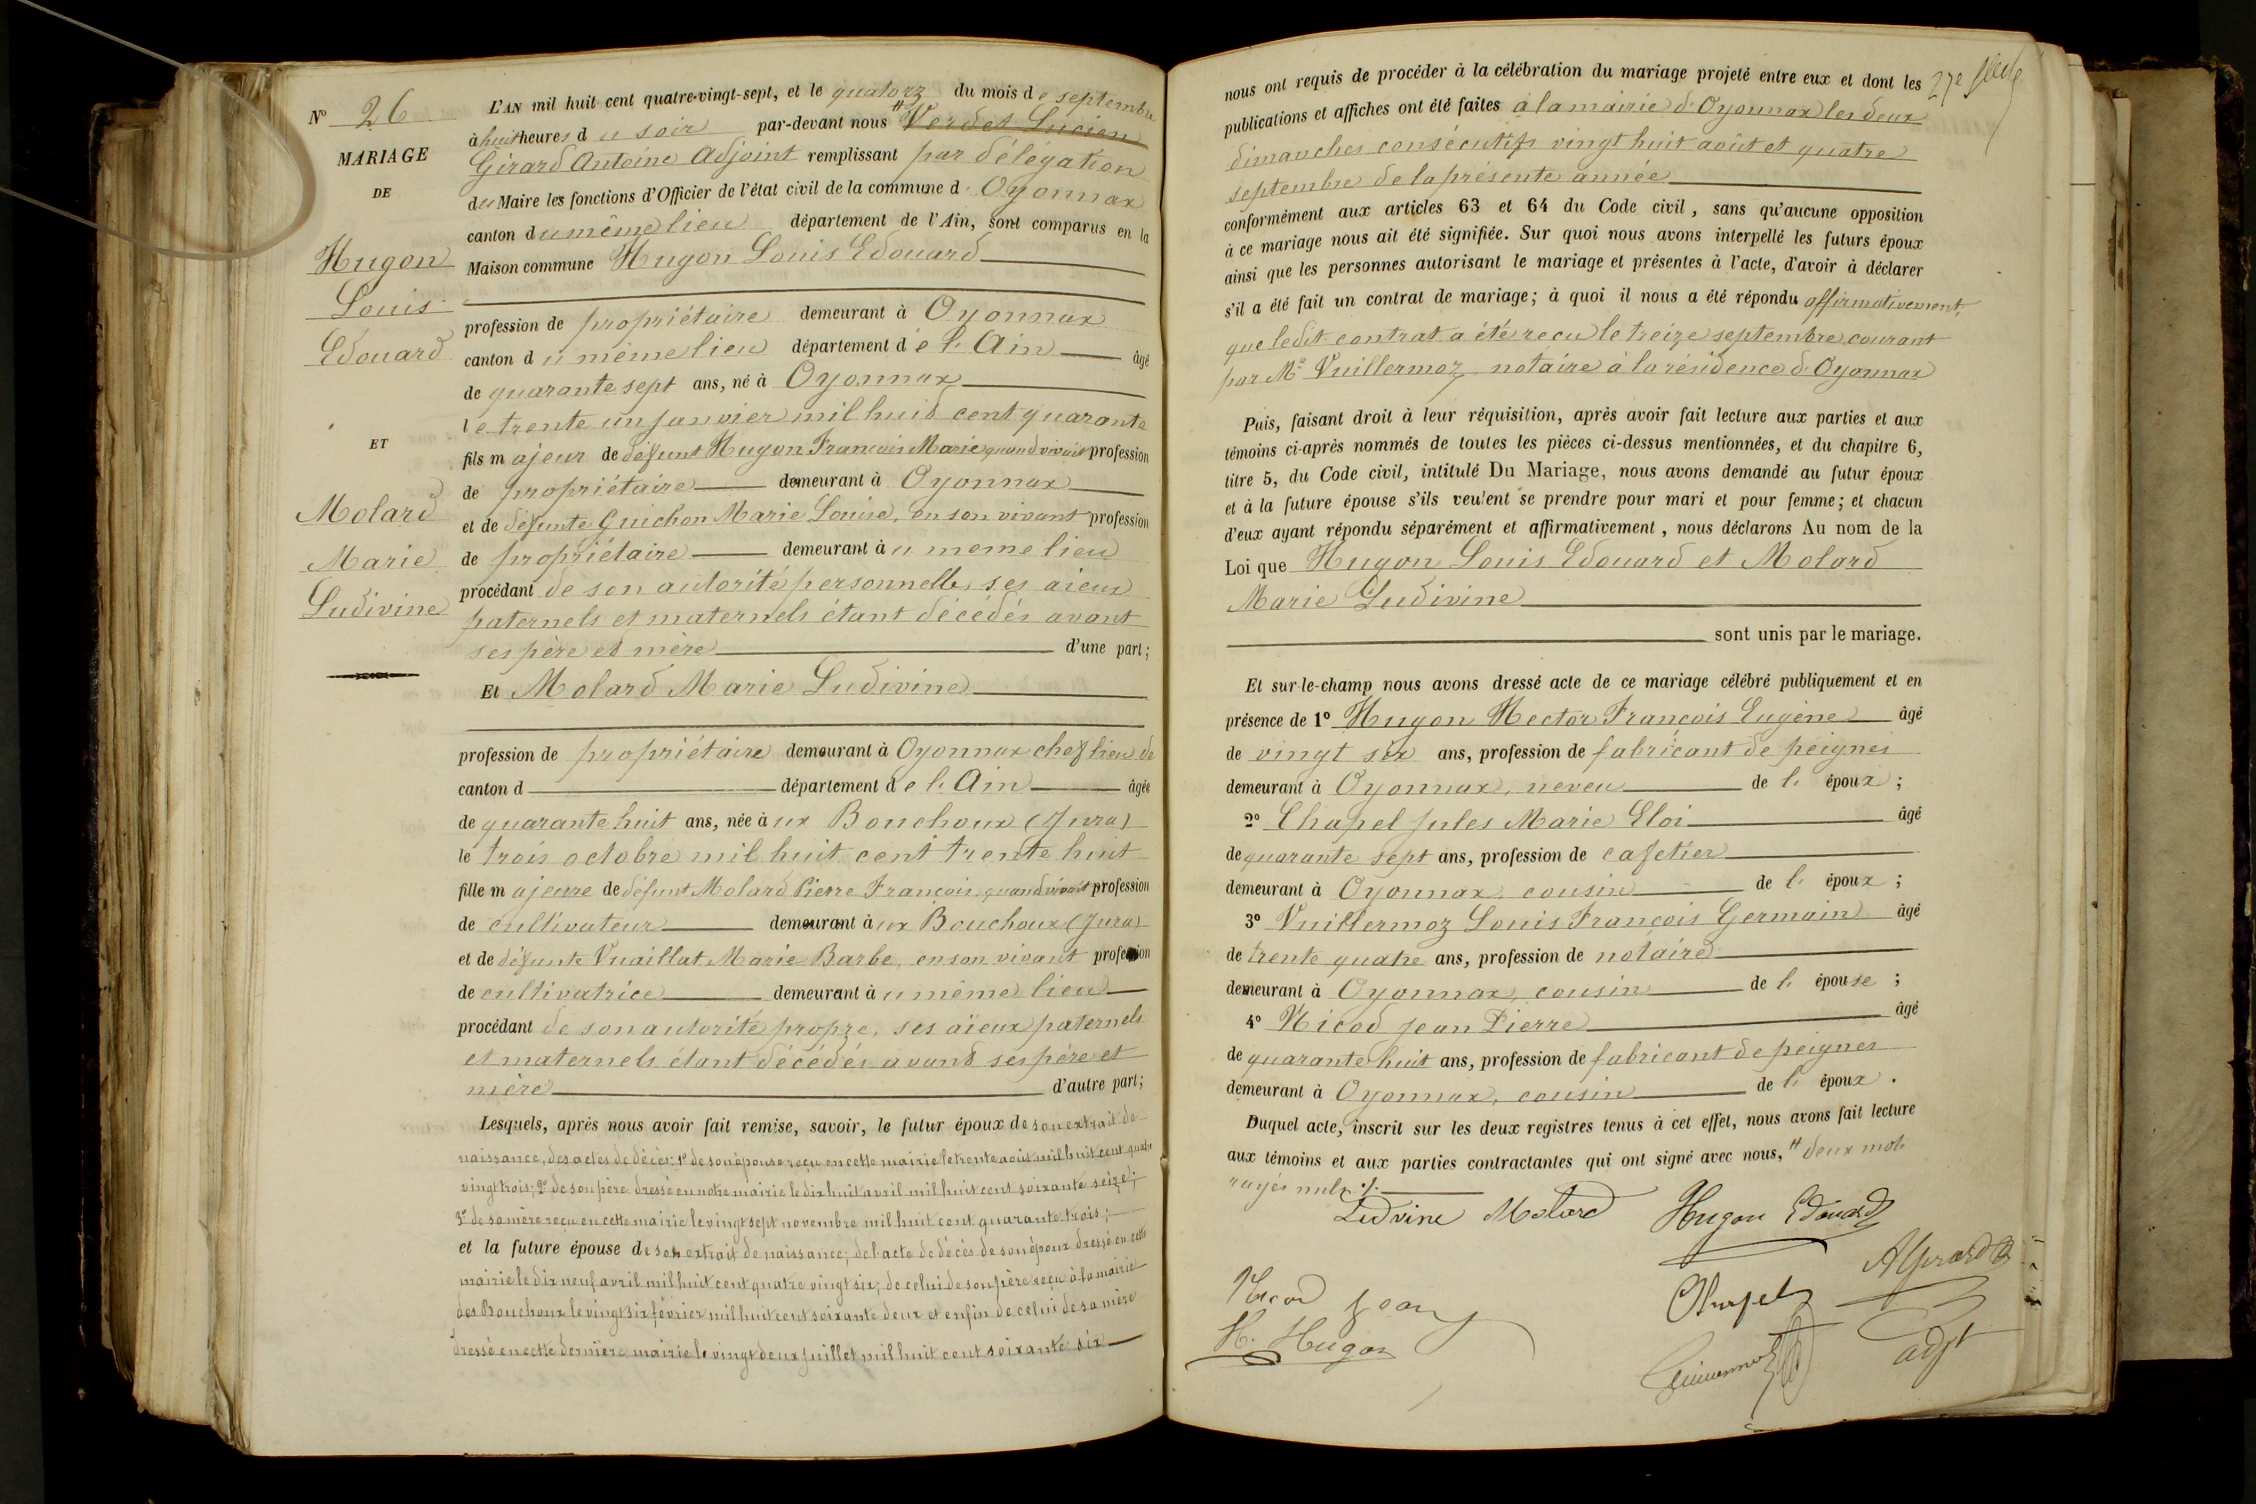 N° 26
MARIAGE
DE
Hugon
Louis
Edouard
ET
Molard
Marie
Ludivine
L'AN mil huit cent quatre-vingt-sept, et le quatorz du mois de septembre
à huit heures du soir par-devant nous # Verdet Lucien
Girard Antoine Adjoint remplissant par délégation
du Maire les fonctions d'Officier de l'état civil de la commune d' Oyonnax
canton du même lieu département de l'Ain, sont comparus en la
Maison commune Hugon Louis Edouard
profession de propriétaire demeurant à Oyonnax
canton du même lieu département de l'Ain âgé
de quarante sept ans, né à Oyonnax
le trente un janvier mil huit cent quarante
fils majeur de défunt Hugon François Marie quand vivait profession
de propriétaire demeurant à Oyonnax
et de défunte Guichon Marie Louise, en son vivant profession
de propriétaire demeurant au meme lieu
procédant de son autorité personnelle, ses aieux
paternels et maternels étant décédés avant
ses père et mère d'une part;
Et Molard Marie Ludivine
profession de propriétaire demeurant à Oyonnax chef lieu de
canton d département de l'Ain âgée
de quarante huit ans, née aux Bouchoux (Jura)
le trois octobre mil huit cent trente huit
fille majeure de défunt Molard Pierre François quand vivait profession
de cultivateur demeurant aux Bouchoux (Jura)
et de défunte Vuaillat Marie Barbe, en son vivant profession
de cultivatrice demeurant au même lieu
procédant de son autorité propre, ses aïeux paternels
et maternels étant décédés avant ses père et
mère d'autre part;
Lesquels, après nous avoir fait remise, savoir, le futur époux de son extrait de
naissance, des actes de décès: 1° de son épouse reçu en cette mairie le trente août mil huit cent quatre
vingt trois; 2° de son père dressé en notre mairie le dix huit avril mil huit cent soixante seize;
3° de sa mère reçu en cette mairie le vingt sept novembre mil huit cent quarante trois;
et la future épouse de son extrait de naissance; de l'acte de décès de son époux dressé en cette
mairie le dix neuf avril mil huit cent quatre vingt six; de celui de son père reçu à la mairie
des Bouchoux le vingt six février mil huit cent soixante deux et enfin de celui de sa mère
dressé en cette dernière mairie le vingt deux juillet mil huit cent soixante six
27e
nous ont requis de procéder à la célébration du mariage projeté entre eux et dont les
publications et affiches ont été faites à la mairie d'Oyonnax les deux
dimanches consécutifs vingt huit août et quatre
septembre de la présente année
conformément aux articles 63 et 64 du Code civil, sans qu'aucune opposition
à ce mariage nous ait été signifiée. Sur quoi nous avons interpellé les futurs époux
ainsi que les personnes autorisant le mariage et présentes à l'acte, d'avoir à déclarer
s'il a été fait un contrat de mariage; à quoi il nous a été répondu affirmativement,
que ledit contrat a été reçu le treize septembre courant
par Me Vuillermoz notaire à la résidence d'Oyonnax
Puis, faisant droit à leur réquisition, après avoir fait lecture aux parties et aux
témoins ci-après nommés de toutes les pièces ci-dessus mentionnées, et du chapitre 6,
titre 5, du Code civil, intitulé Du Mariage, nous avons demandé au futur époux
et à la future épouse s'ils veulent se prendre pour mari et pour femme; et chacun
d'eux ayant répondu séparément et affirmativement, nous déclarons Au nom de la
Loi que Hugon Louis Edouard et Molard
Marie Ludivine
sont unis par le mariage.
Et sur-le-champ nous avons dressé acte de ce mariage célébré publiquement et en
présence de 1° Hugon Hector François Eugène âgé
de vingt six ans, profession de fabricant de peignes
demeurant à Oyonnax, neveu de l' époux;
2° Chapel Jules Marie Eloi âgé
de quarante sept ans, profession de cafetier
demeurant à Oyonnax, cousin de l' époux;
3° Vuillermoz Louis François Germain âgé
de trente quatre ans, profession de notaire
demeurant à Oyonnax, cousin de l' épouse;
4° Nicod Jean Pierre âgé
de quarante huit ans, profession de fabricant de peignes
demeurant à Oyonnax, cousin de l' époux.
Duquel acte, inscrit sur les deux registres tenus à cet effet, nous avons fait lecture
aux témoins et aux parties contractantes qui ont signé avec nous, # deux mots
rayés nuls ./.
Ludvine Molard Hugon Edouard
AGirard
Nicod Jean Chapel
H. Hugon adjt